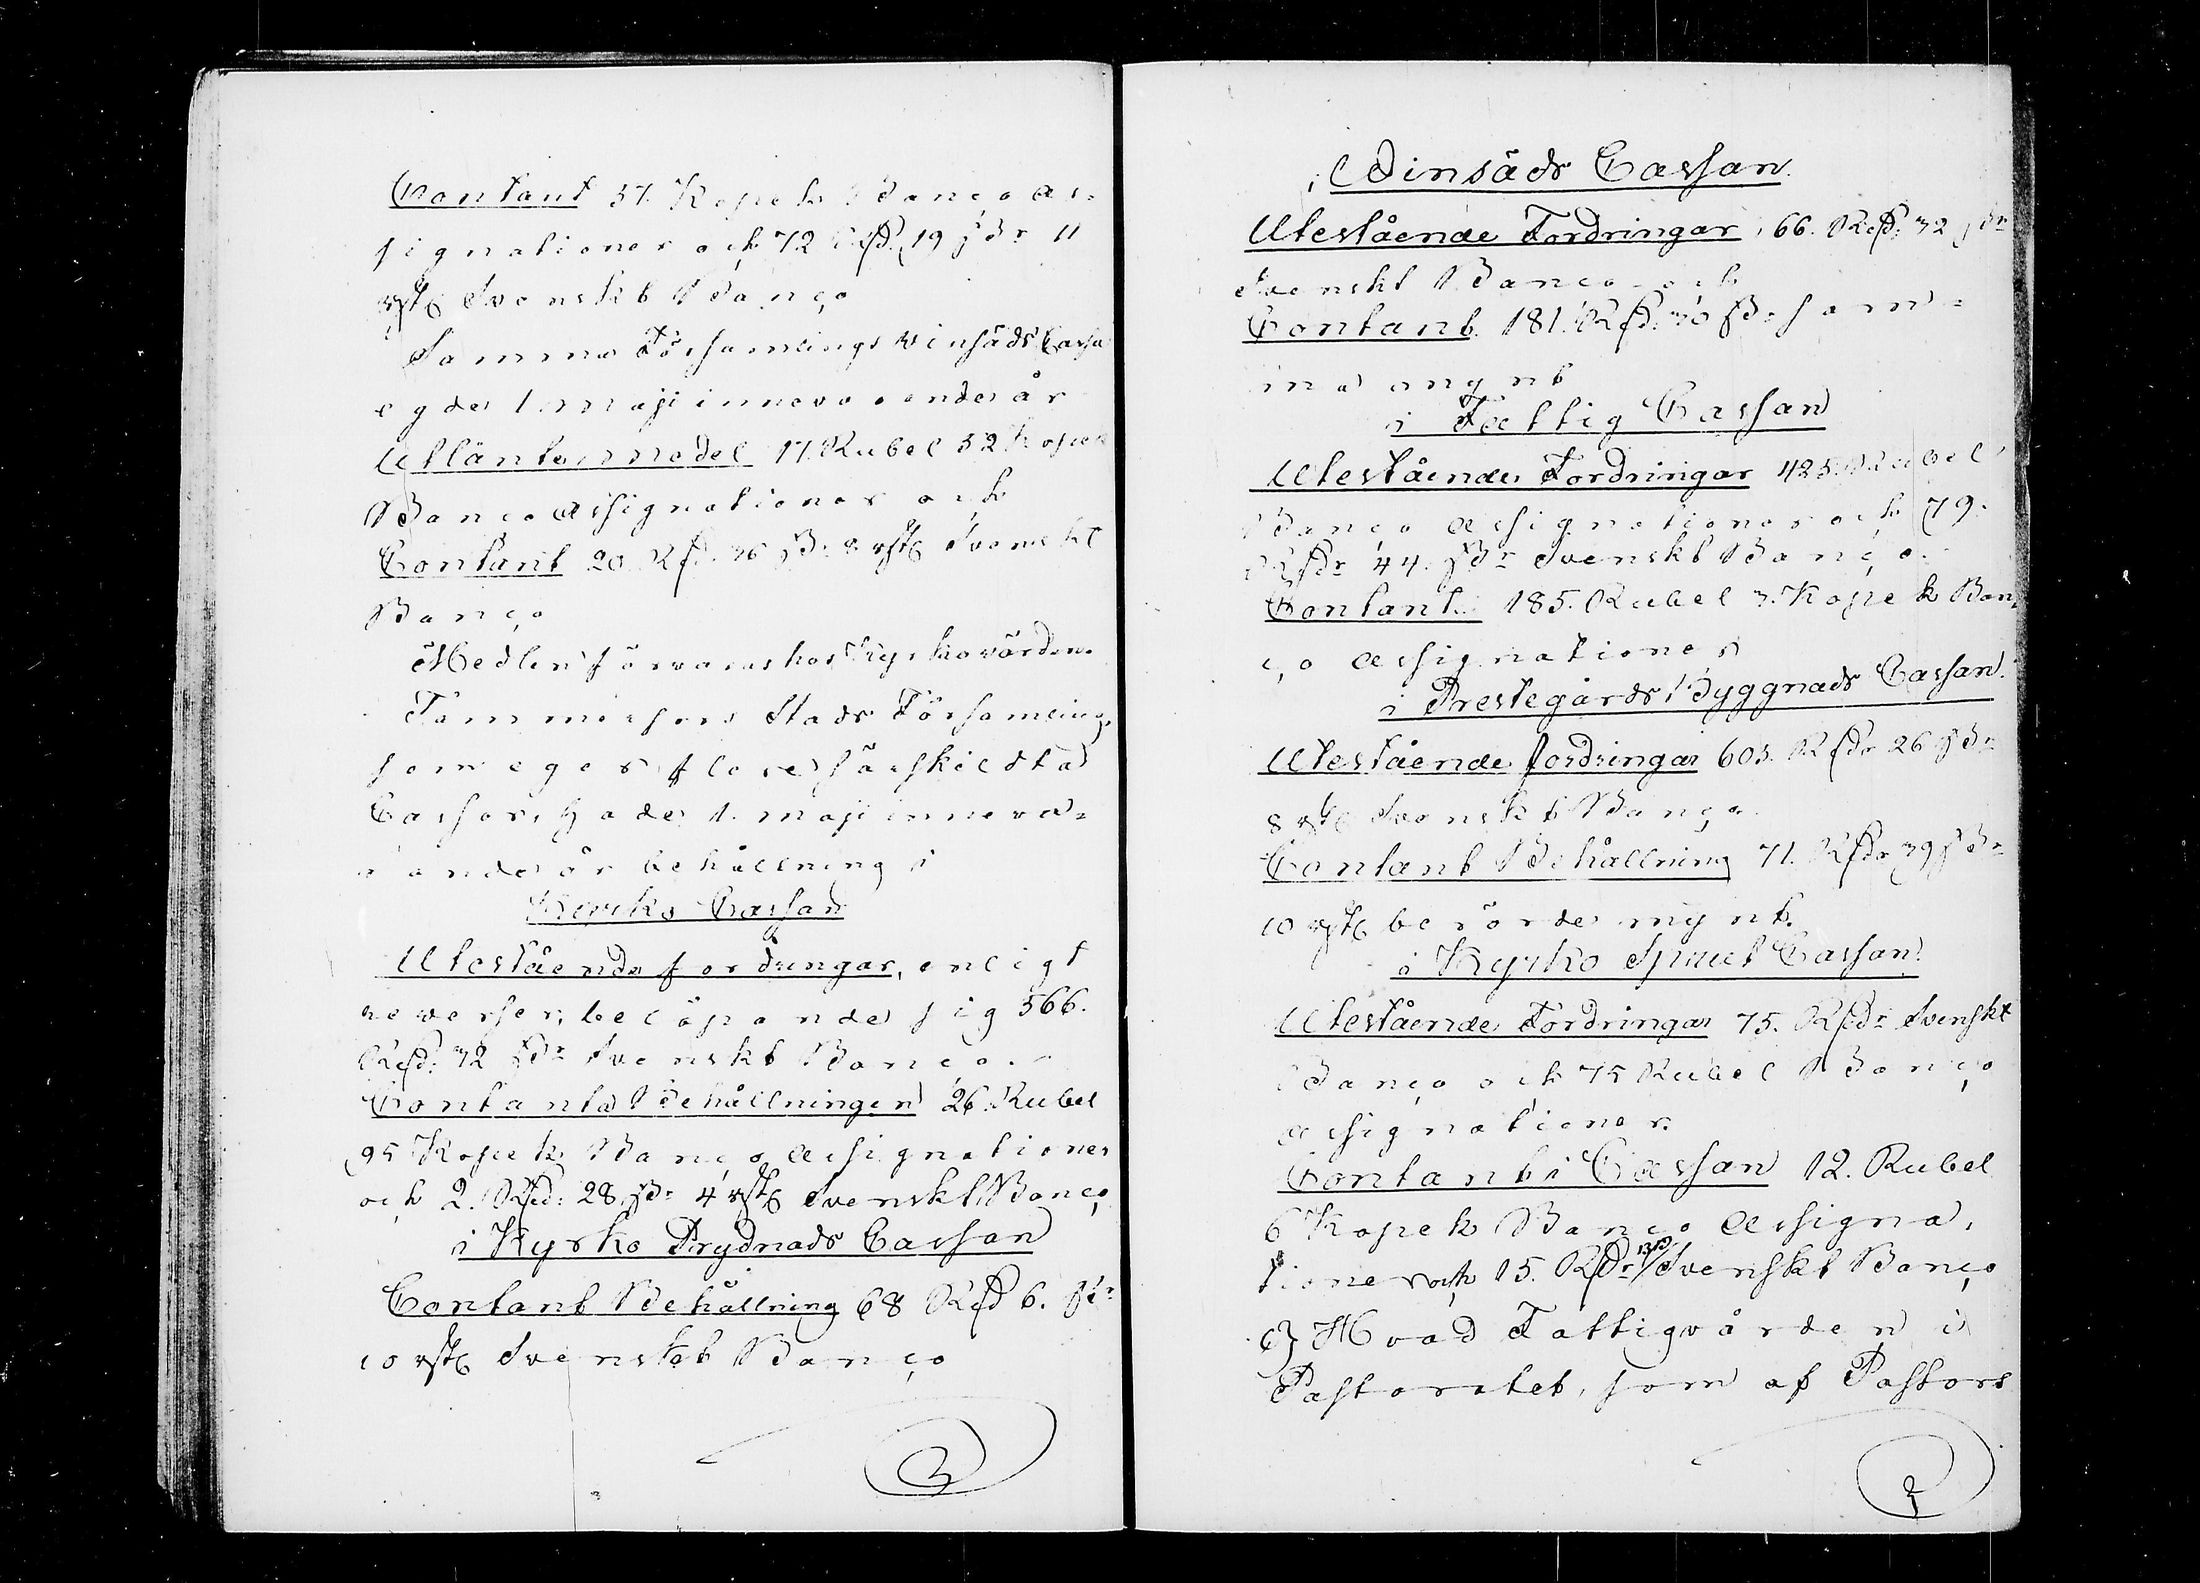 Contant 37. Kopek Banco As-
signationer och 72 Rsd. 19 ſ Br 11
rst Svenskt Banco
Samma Församlings Vinsäds Cassa
egde 1 maji innevarande år
Utlånte medel 17. Rubel 32 Kopek
Banco Assignationer och
Contant 20 Rsd. 36 ſ Br 8 rst Svenskt
Banco
Medlen förvaras hos Kyrkovärden.
Tammerfors Stads Församling,
som eger flere särskildta
Cassor, hade 1. maji inneva-
rande år behållning i
Kyrko Cassan
Utestående fordringar, enligt
reverser, belöpande sig 566.
Rsd: 32 ſ Br Svenskt Banco.
Contanta Behållningen 26. Rubel
95 Kopek Banco Assignationer
och 2. Rsd: 28 ſ Br 4 rst Svenskt Banco
i Kyrko Prydnads Cassan
Contant Behållning 68 Rsd 6. ſ Br
10 rst Svenskt Banco
i Vinsäds Cassan
Utestående Fordringar, 66. Rsd: 32 ſ Br
Svenskt Banco och
Contant. 181. Rsd: 30 ſ Br sam-
ma mynt
i Fattig Cassan
Utestående Fordringar 425. Rubel
Banco Assignationer och 79.
Rsdr 44. ſ Br Svenskt Banco.
Contant 185. Rubel 3. Kopek Ban-
co Assignationer
i Prestegårds Byggnads Cassan.
Utestående fordringar 603. Rsdr 26 ſ Br
8 rst Svenskt Banco
Contant Behållning 71. Rsdr 39 ſ Br
10 rst berörde mynt.
i Kyrko Sprut Cassan
Utestående Fordringar 75. Rsdr Svenskt
Banco och 75 Rubel Banco
Assignationer.
Contant i Cassan 12. Rubel
6 Kopek Banco Assigna-
tioner och 15. Rsdr Svenskt Banco
Hvad Fattigvården i
Pastoratet, som af Pastors